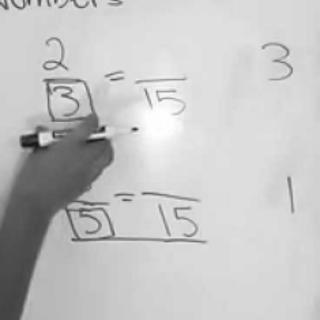 Numbers
2
3 = 15 3
5 = 15 1